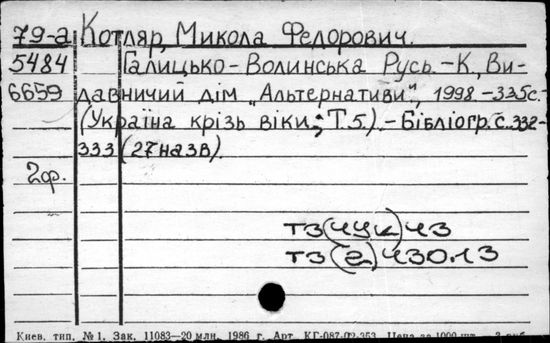 79-а Котляр, Микола Федорович.
5484 Галицько-Волинська Русь.-К., Ви-
6659 давничий дім „Альтернативи", 1998.-335с.-
(Україна крізь віки.; Т.5.).-Бібліогр.: с.332-
333 (27 назв).
2ф.
Т3(4Ук)43
Т3(2)430.13
Киев. тип. № 1. Зак. 11083—20 млн. 1986 г. Арт. КГ-087-02-353. Цена за 1000 шт.